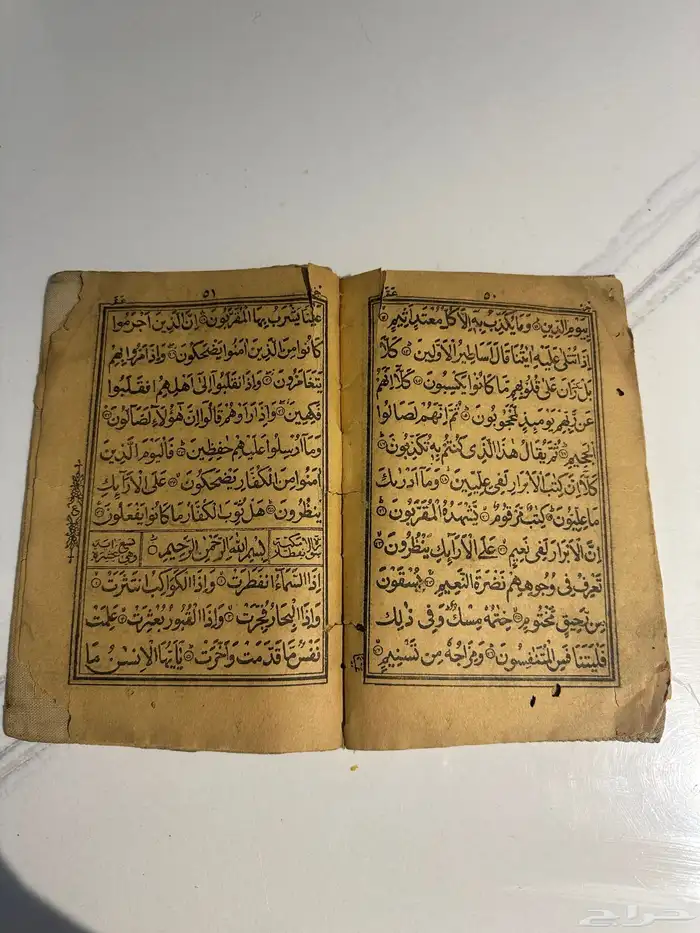 ٥٠
بِيَوْمِ الدِّينِ وَمَا يُكَذِّبُ بِهِ إِلَّا كُلُّ مُعْتَدٍ أَثِيمٍ
إِذَا تُتْلَى عَلَيْهِ آيَتُنَا قَالَ أَسَاطِيرُ الْأَوَّلِينَ كَلَّا
بَلْ رَانَ عَلَى قُلُوبِهِمْ مَا كَانُوا يَكْسِبُونَ كَلَّا إِنَّهُمْ
عَنْ رَبِّهِمْ يَوْمَئِذٍ لَمَحْجُوبُونَ ثُمَّ إِنَّهُمْ لَصَالُوا
الْجَحِيمِ ثُمَّ يُقَالُ هٰذَا الَّذِي كُنْتُمْ بِهِ تُكَذِّبُونَ
كَلَّا إِنَّ كِتٰبَ الْأَبْرَارِ لَفِي عِلِّيِّينَ وَمَا أَدْرٰىكَ
مَا عِلِّيُّونَ كِتٰبٌ مَرْقُومٌ يَشْهَدُهُ الْمُقَرَّبُونَ
إِنَّ الْأَبْرَارَ لَفِي نَعِيمٍ عَلَى الْأَرَائِكِ يَنْظُرُونَ
تَعْرِفُ فِي وُجُوهِهِمْ نَضْرَةَ النَّعِيمِ يُسْقَوْنَ
مِنْ رَحِيقٍ مَخْتُومٍ خِتٰمُهُ مِسْكٌ وَفِي ذٰلِكَ
فَلْيَتَنَافَسِ الْمُتَنَافِسُونَ وَمِزَاجُهُ مِنْ تَسْنِيمٍ
٥١
عَيْنًا يَشْرَبُ بِهَا الْمُقَرَّبُونَ إِنَّ الَّذِينَ أَجْرَمُوا
كَانُوا مِنَ الَّذِينَ آمَنُوا يَضْحَكُونَ وَإِذَا مَرُّوا بِهِمْ
يَتَغَامَزُونَ وَإِذَا انْقَلَبُوا إِلَى أَهْلِهِمُ انْقَلَبُوا
فَكِهِينَ وَإِذَا رَأَوْهُمْ قَالُوا إِنَّ هٰؤُلَاءِ لَضَالُّونَ
وَمَا أُرْسِلُوا عَلَيْهِمْ حٰفِظِينَ فَالْيَوْمَ الَّذِينَ
آمَنُوا مِنَ الْكُفَّارِ يَضْحَكُونَ عَلَى الْأَرَائِكِ
يَنْظُرُونَ هَلْ ثُوِّبَ الْكُفَّارُ مَا كَانُوا يَفْعَلُونَ
بِسْمِ اللهِ الرَّحْمٰنِ الرَّحِيمِ
إِذَا السَّمَاءُ انْفَطَرَتْ وَإِذَا الْكَوَاكِبُ انْتَثَرَتْ
وَإِذَا الْبِحَارُ فُجِّرَتْ وَإِذَا الْقُبُورُ بُعْثِرَتْ عَلِمَتْ
نَفْسٌ مَا قَدَّمَتْ وَأَخَّرَتْ يٰأَيُّهَا الْإِنْسٰنُ مَا
حراج